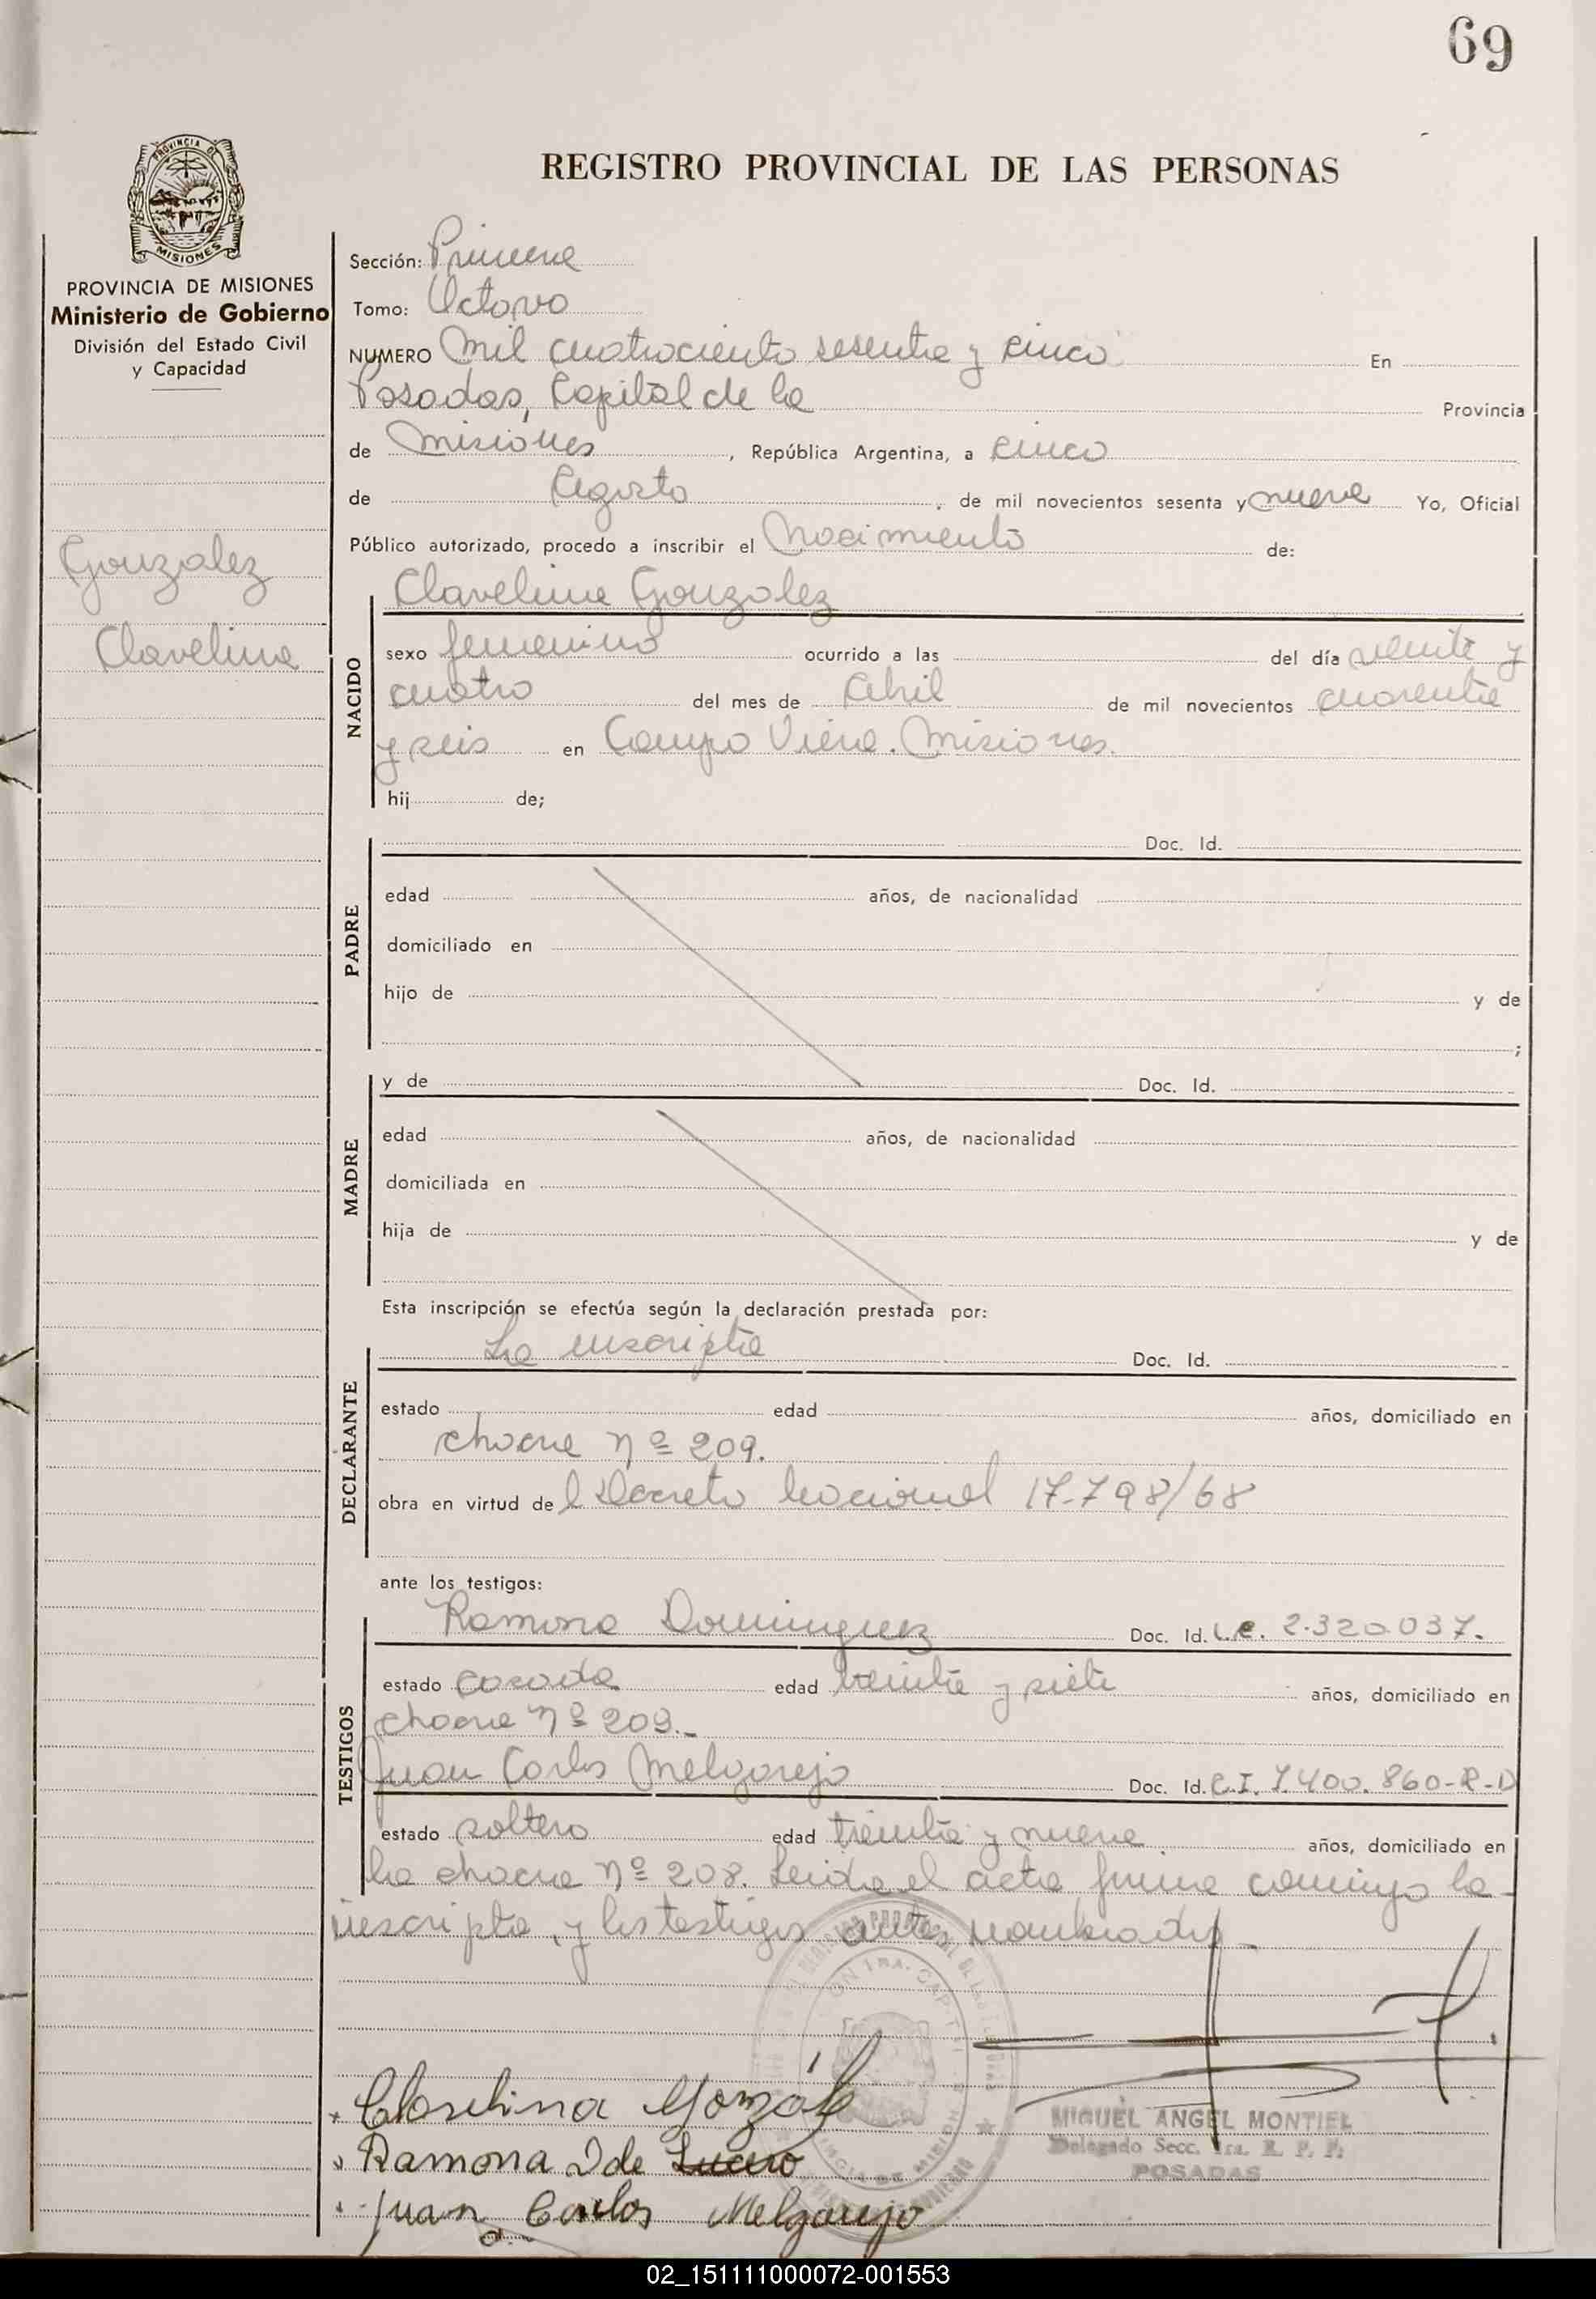 69
REGISTRO PROVINCIAL DE LAS PERSONAS
PROVINCIA DE MISIONES
PROVINCIA DE MISIONES
Ministerio de Gobierno
División del Estado Civil
y Capacidad
Gonzalez
Clavelina
Sección: Primera
Tomo: Octavo
NUMERO Mil cuatrociento sesenta y cinco En
Posadas, Capital de la Provincia
de Misiones, República Argentina, a cinco
de Agosto, de mil novecientos sesenta y nueve Yo, Oficial
Público autorizado, procedo a inscribir el Nacimiento de:
NACIDO
Clavelina Gonzalez
sexo femenino ocurrido a las del día veinte y
cuatro del mes de Abril de mil novecientos cuarenta
y seis en Campo Viera. Misiones.
hij de;
PADRE
Doc. Id.
edad años, de nacionalidad
domiciliado en
hijo de y de
;
MADRE
y de Doc. Id.
edad años, de nacionalidad
domiciliada en
hija de y de
Esta inscripción se efectúa según la declaración prestada por:
DECLARANTE
La inscripta Doc. Id.
estado edad años, domiciliado en
chacra Nº 209.
obra en virtud del Decreto Nacional 17.798/68
ante los testigos:
TESTIGOS
Ramona Dominguez Doc. Id. L.C. 2.320.037.
estado casada edad treinta y siete años, domiciliado en
chacra Nº 209.-
Juan Carlos Melgarejo Doc. Id. C.I. 7.400.860-R-D
estado soltero edad treinta y nueve años, domiciliado en
la chacra Nº 208. Leida el acta firma conmigo la
inscripta, y los testigos antes nombrados-
Clavelina González
Ramona D de Lucero
Juan Carlos Melgarejo
MIGUEL ANGEL MONTIEL
Delegado Secc. 1ra. R. P. P.
POSADAS
02_151111000072-001553